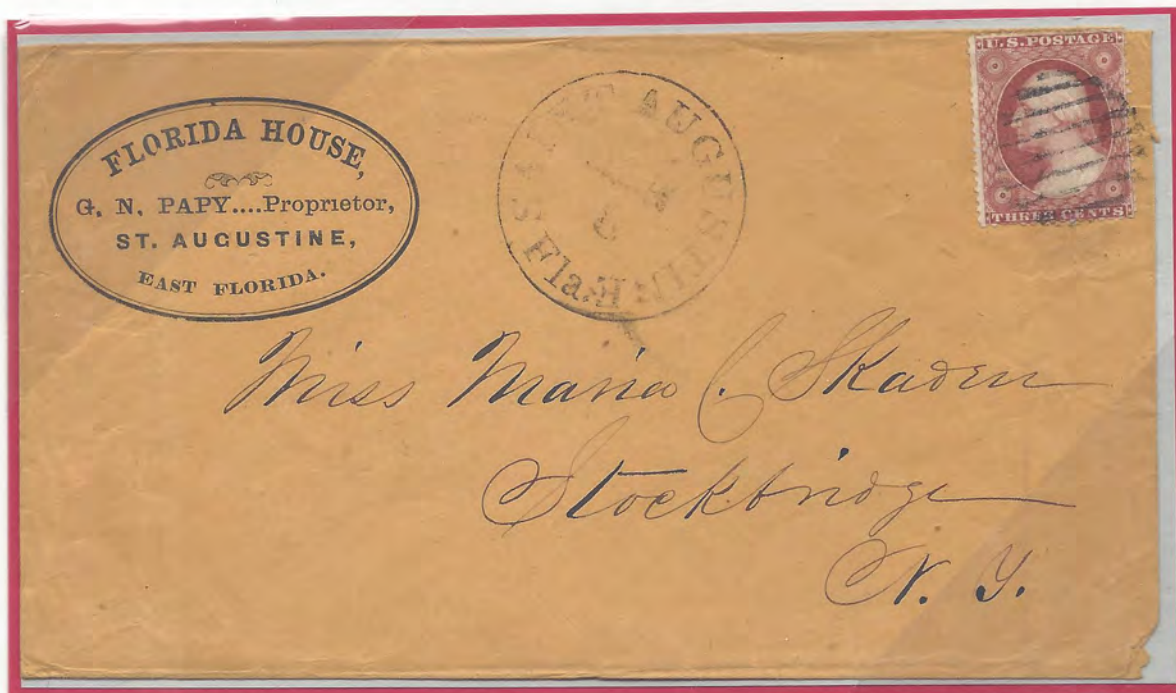 FLORIDA HOUSE,
G. N. PAPY....Proprietor,
ST. AUGUSTINE,
EAST FLORIDA.
SAINT AUGUSTINE
Fla.
U.S. POSTAGE
THREE CENTS
Miss Maria C. Skaden
Stockbridge
N. Y.